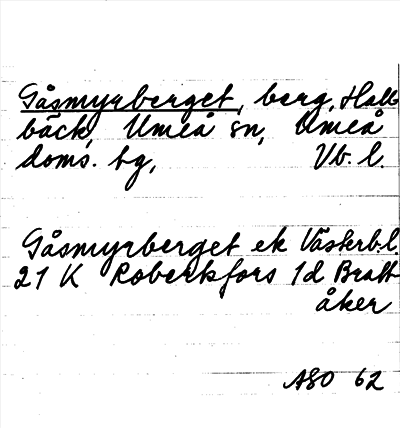 Gåsmyrberget, berg, Hall
bäck, Umeå sn, Umeå
doms. tg, Vb. l.
Gåsmyrberget ek Västerb.l.
21 K Robertsfors 1d Bratt
åker
ASO 62